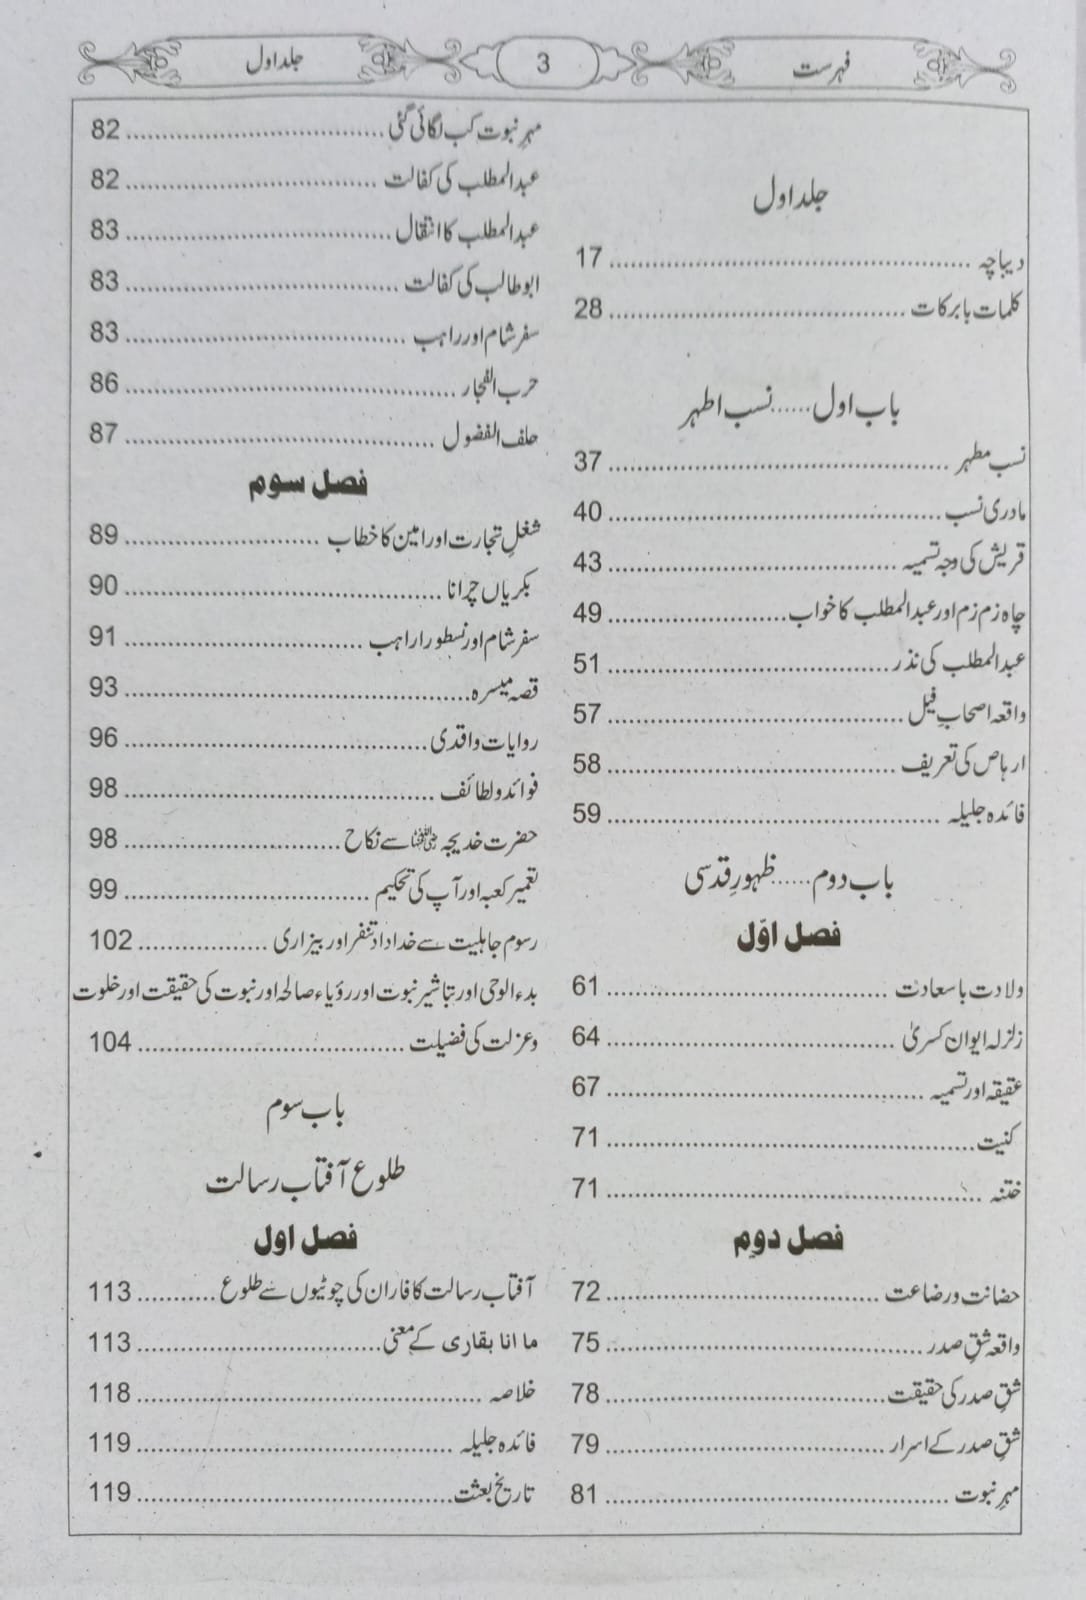 فہرست
3
جلد اول
جلد اول
دیباچہ ................ 17
کلمات بابرکات ................ 28
باب اول ...... نسب اطہر
نسب مطہر ................ 37
مادری نسب ................ 40
قریش کی وجہ تسمیہ ................ 43
چاہ زم زم اور عبدالمطلب کا خواب ................ 49
عبدالمطلب کی نذر ................ 51
واقعہ اصحابِ فیل ................ 57
ارہاص کی تعریف ................ 58
فائدہ جلیلہ ................ 59
باب دوم ...... ظہورِ قدسی
فصل اوّل
ولادت باسعادت ................ 61
زلزلہ ایوان کسریٰ ................ 64
عقیقہ اور تسمیہ ................ 67
کنیت ................ 71
ختنہ ................ 71
فصل دوم
حضانت ورضاعت ................ 72
واقعہ شقِ صدر ................ 75
شقِ صدر کی حقیقت ................ 78
شقِ صدر کے اسرار ................ 79
مہرِ نبوت ................ 81
مہرِ نبوت کب لگائی گئی ................ 82
عبدالمطلب کی کفالت ................ 82
عبدالمطلب کا انتقال ................ 83
ابوطالب کی کفالت ................ 83
سفر شام اور راہب ................ 83
حرب الفجار ................ 86
حلف الفضول ................ 87
فصل سوم
شغلِ تجارت اور امین کا خطاب ................ 89
بکریاں چرانا ................ 90
سفر شام اور نسطورا راہب ................ 91
قصہ میسرہ ................ 93
روایات واقدی ................ 96
فوائد ولطائف ................ 98
حضرت خدیجہ رضی اللہ عنہا سے نکاح ................ 98
تعمیر کعبہ اور آپ کی تحکیم ................ 99
رسوم جاہلیت سے خداداد تنفر اور بیزاری ................ 102
بدء الوحی اور تباشیر نبوت اور رؤیاء صالحہ اور نبوت کی حقیقت اور خلوت
وعزلت کی فضیلت ................ 104
باب سوم
طلوع آفتاب رسالت
فصل اول
آفتاب رسالت کا فاران کی چوٹیوں سے طلوع ........... 113
ما انا بقاری کے معنی ................ 113
خلاصہ ................ 118
فائدہ جلیلہ ................ 119
تاریخ بعثت ................ 119